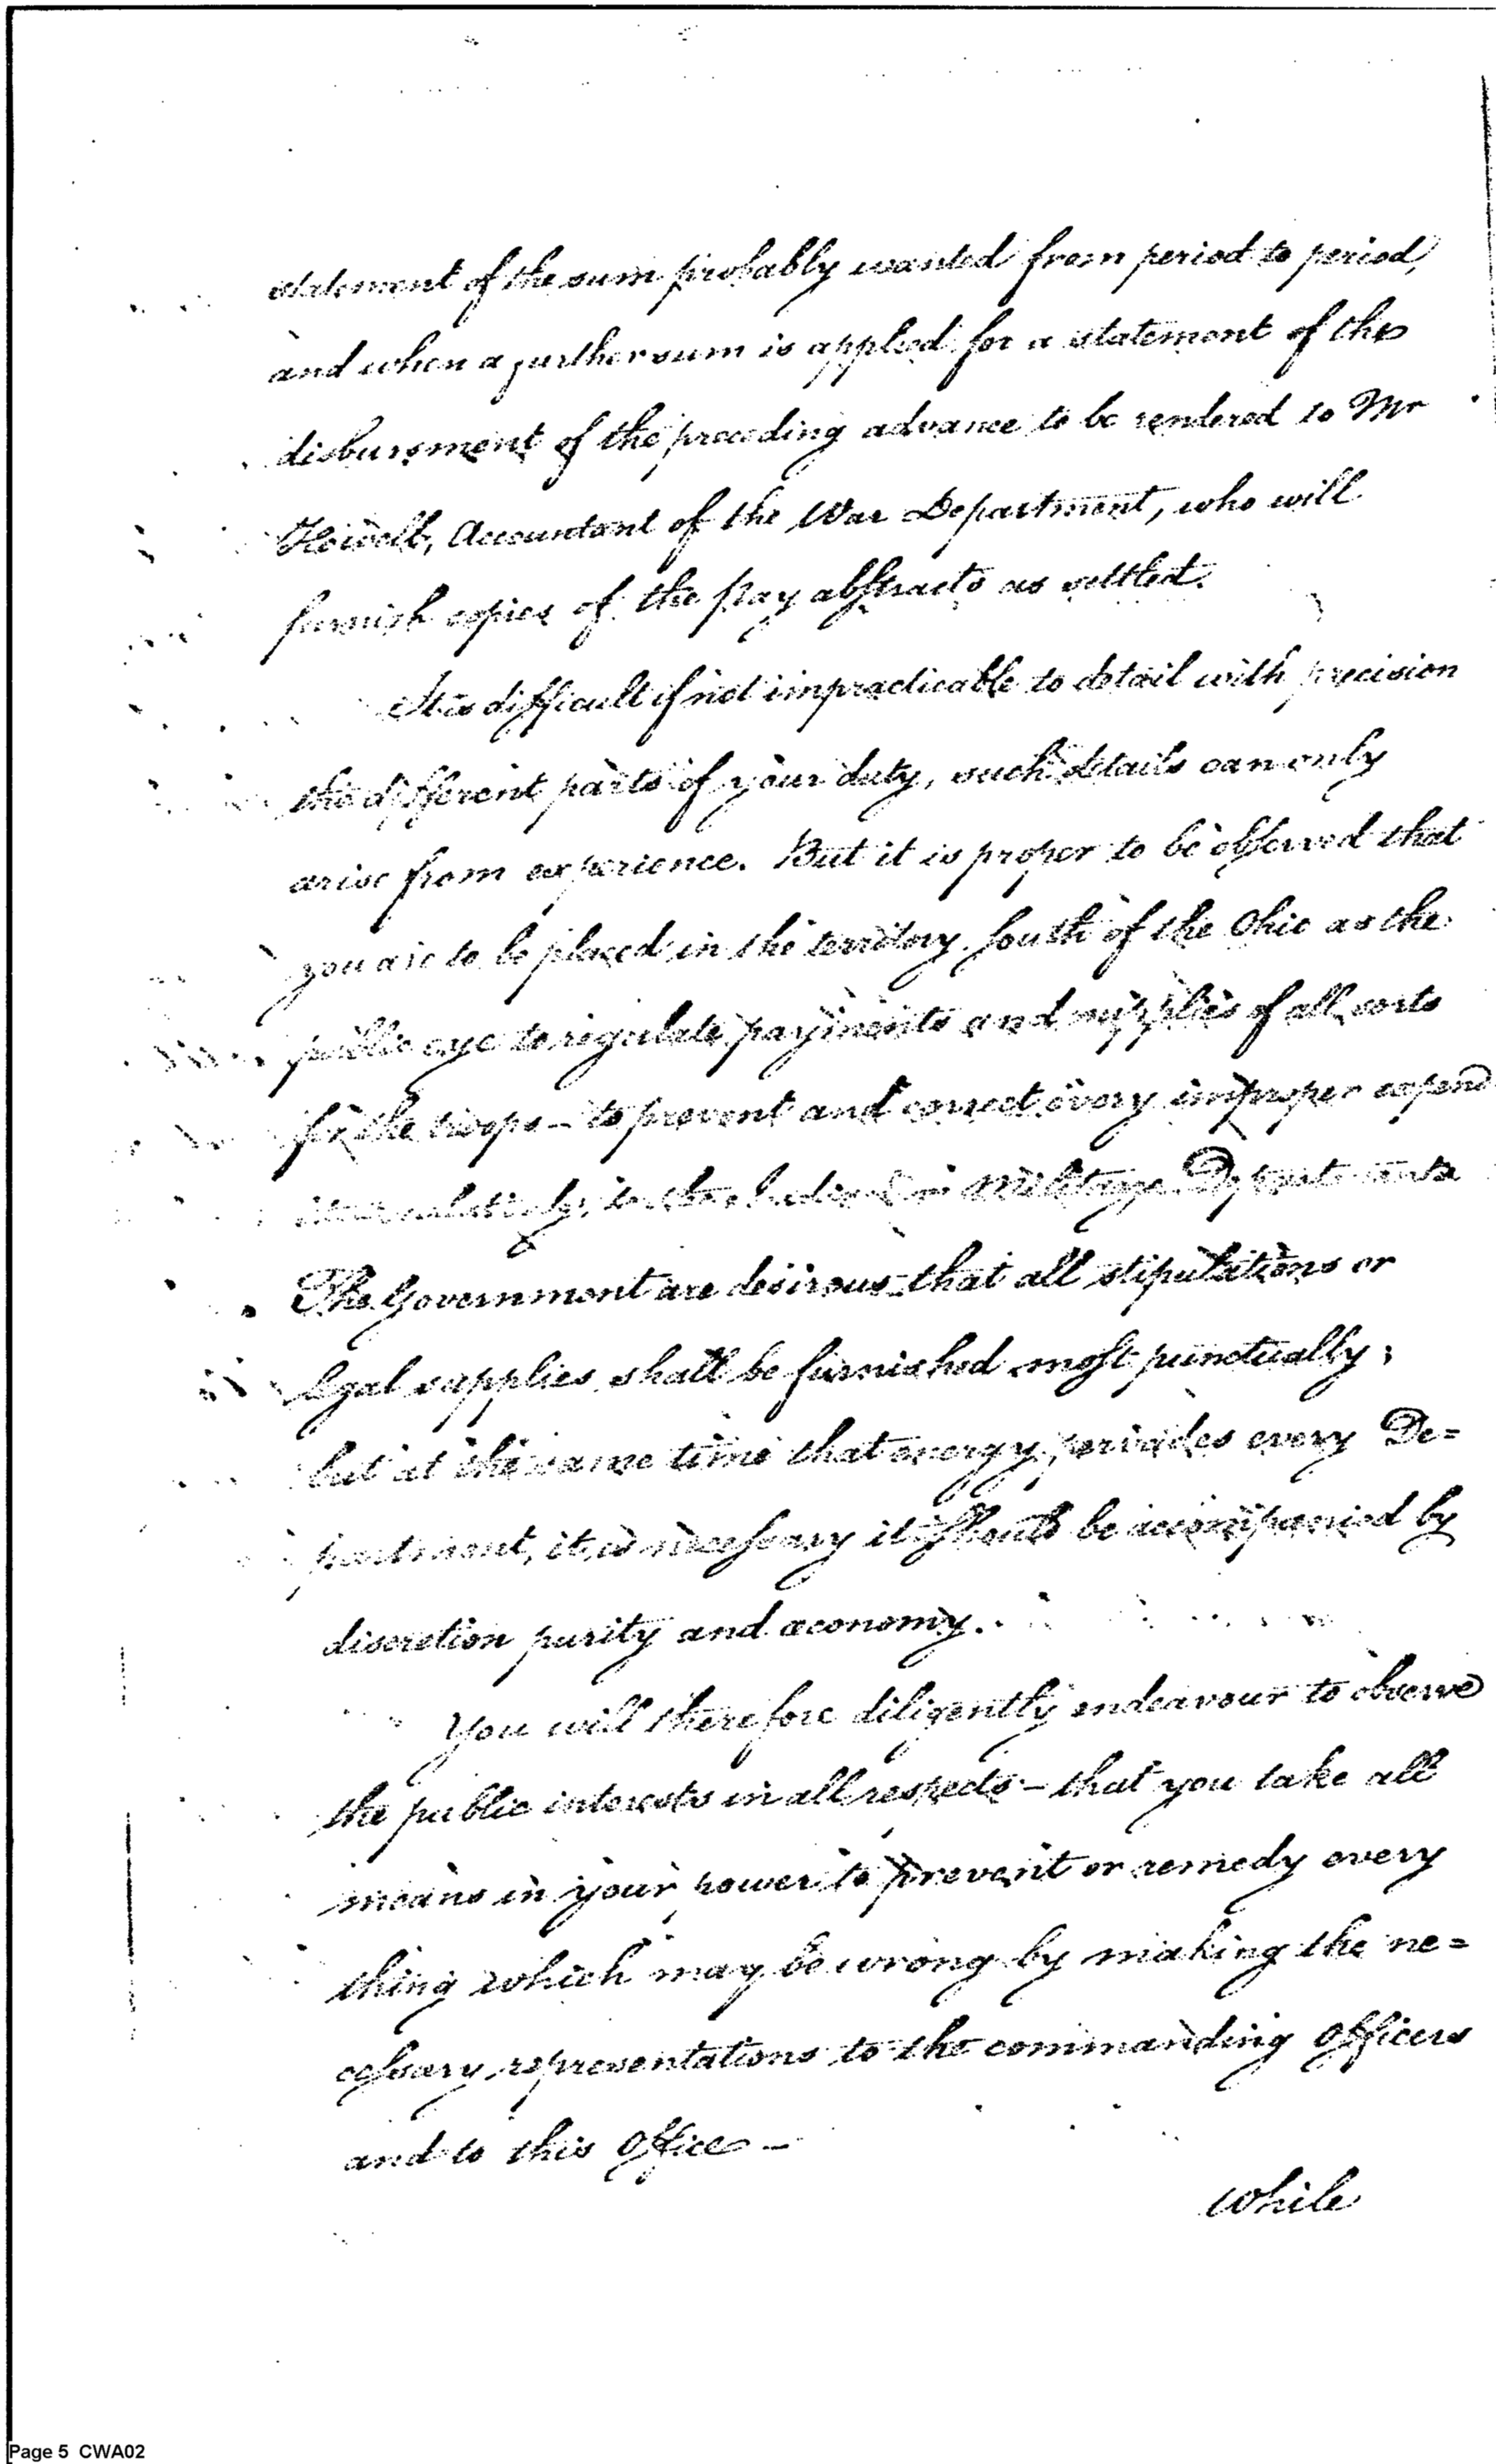 statement of the sum probably wanted from period to period,
and when a further sum is applied for a statement of the
disbursment of the preceding advance to be rendered to Mr
Howell, Accountant of the War Department, who will
furnish copies of the pay abstracts as settled.
It is difficult if not impracticable to detail with precision
the different parts of your duty, such details can only
arise from experience. But it is proper to be observed that
you are to be placed in the territory South of the Ohio as the
public eye to regulate payments and supplies of all sorts
for the troops – to prevent and correct every improper expend
relatively to the Military Departments
The Government are desirous that all stipulations or
legal supplies shall be furnished most punctually;
but at the same time that energy pervades every De=
partment, it is necessary it should be accompanied by
discretion purity and œconomy.
You will therefore diligently endeavour to observe
the public interests in all respects – that you take all
means in your power to prevent or remedy every
thing which may be wrong by making the ne=
cessary representations to the commanding Officers
and to this Office –
while
Page 5 CWA02